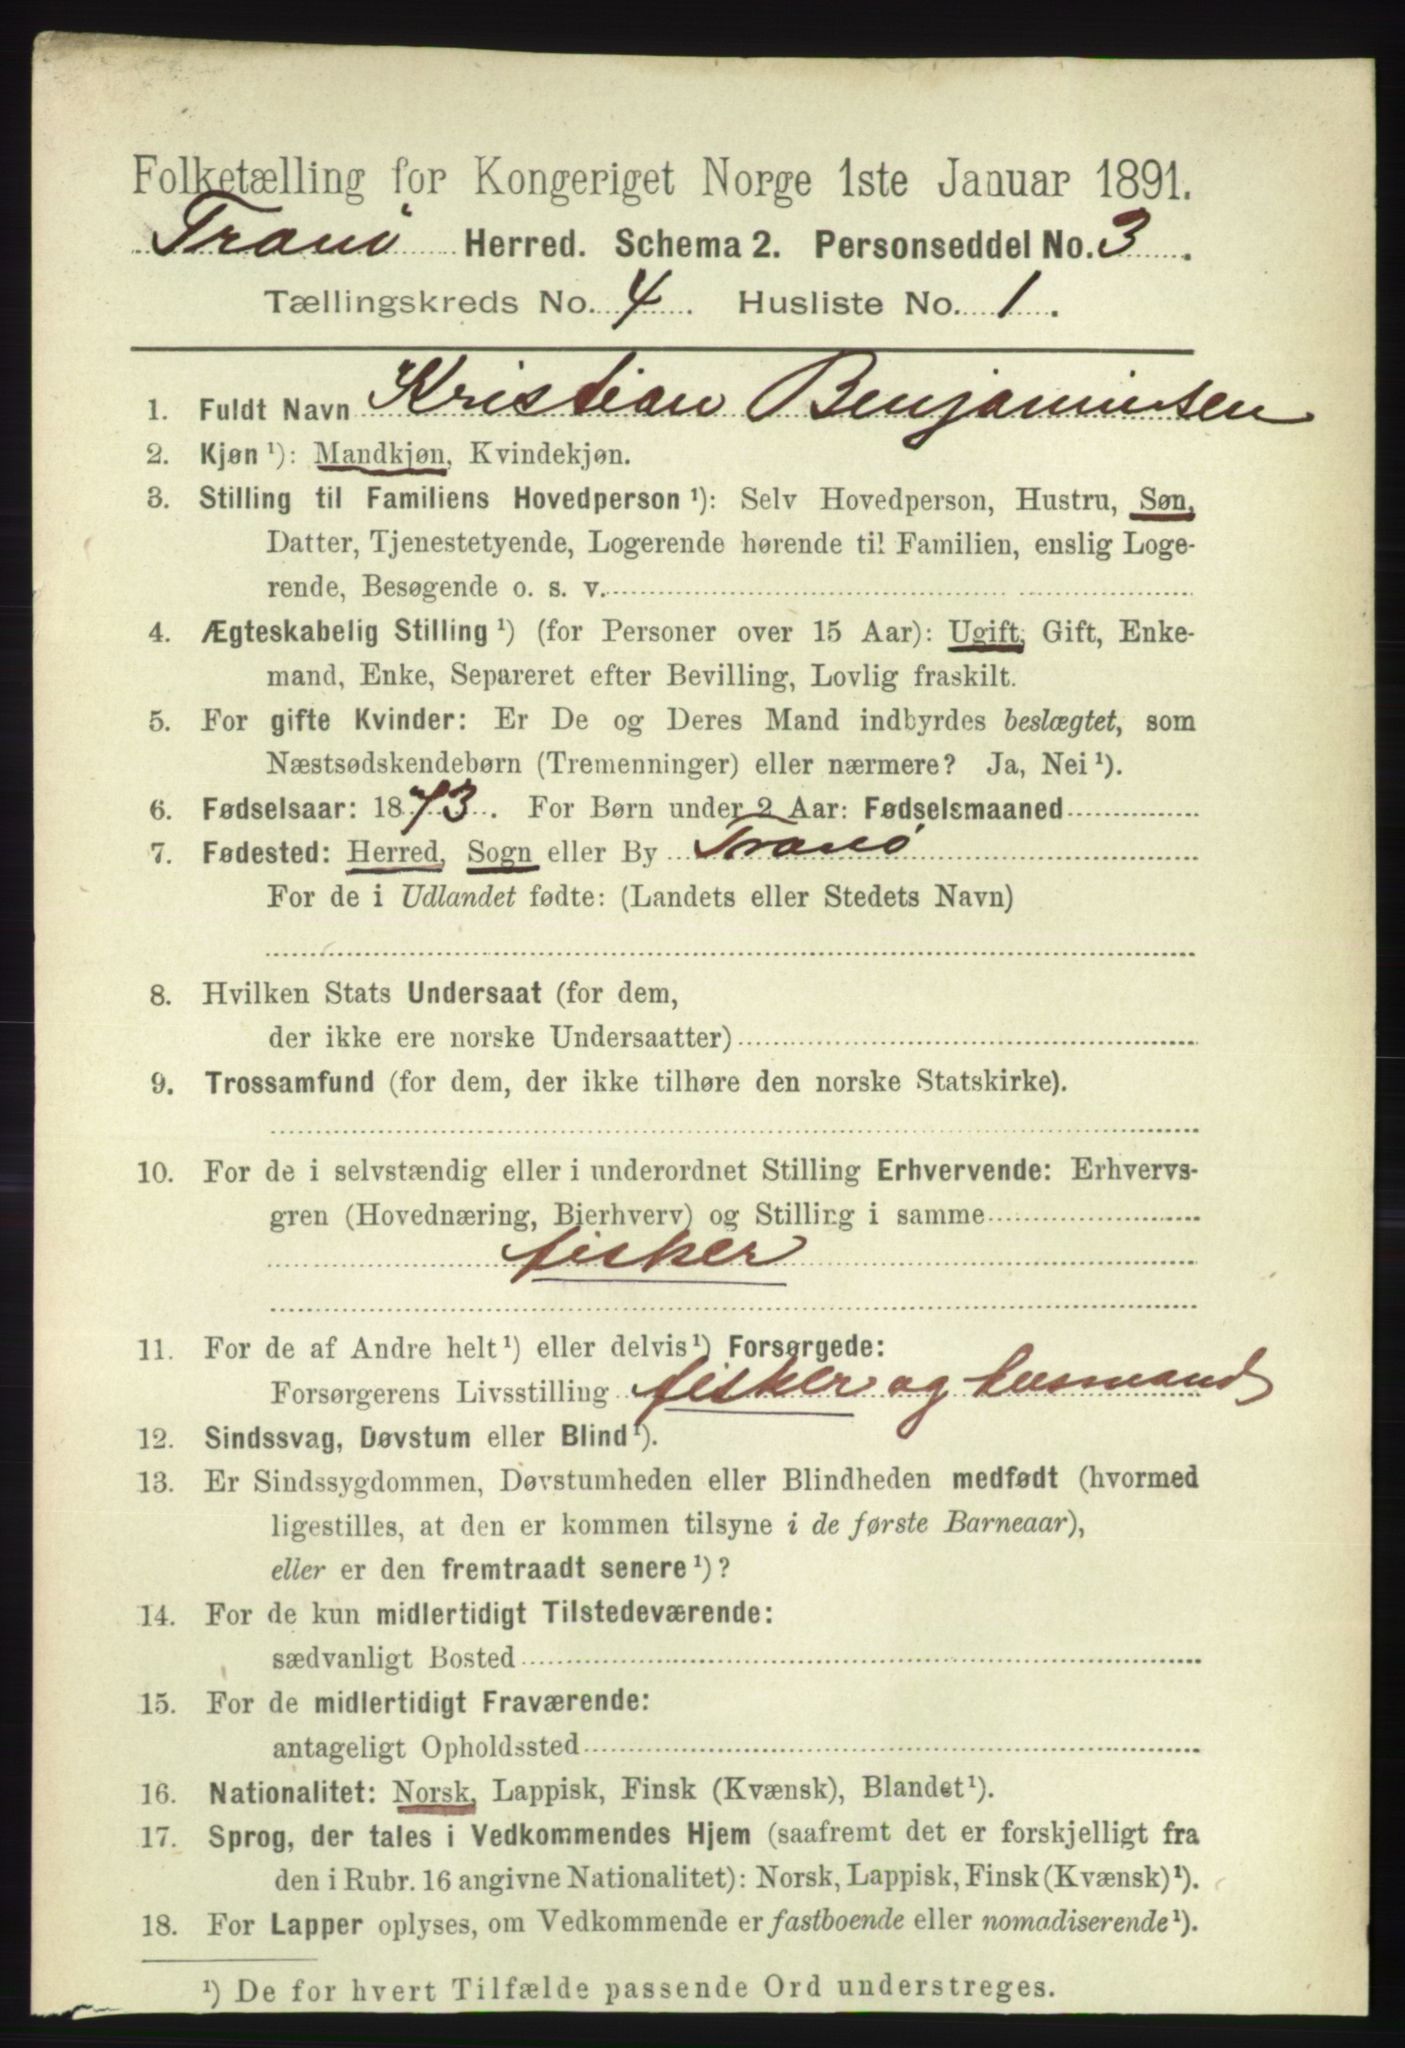 Folketælling for Kongeriget Norge 1ste Januar 1891.
Tranø Herred. Schema 2. Personseddel No. 3.
Tællingskreds No. 4. Husliste No. 1.
1. Fuldt Navn Kristian Benjaminsen
2. Kjøn ¹): Mandkjøn, Kvindekjøn.
3. Stilling til Familiens Hovedperson ¹): Selv Hovedperson, Hustru, Søn,
Datter, Tjenestetyende, Logerende hørende til Familien, enslig Loge-
rende, Besøgende o. s. v.
4. Ægteskabelig Stilling ¹) (for Personer over 15 Aar): Ugift, Gift, Enke-
mand, Enke, Separeret efter Bevilling, Lovlig fraskilt.
5. For gifte Kvinder: Er De og Deres Mand indbyrdes beslægtet, som
Næstsødskendebørn (Tremenninger) eller nærmere? Ja, Nei ¹).
6. Fødselsaar: 1873. For Børn under 2 Aar: Fødselsmaaned
7. Fødested: Herred, Sogn eller By Tranø
For de i Udlandet fødte: (Landets eller Stedets Navn)
8. Hvilken Stats Undersaat (for dem,
der ikke ere norske Undersaatter)
9. Trossamfund (for dem, der ikke tilhøre den norske Statskirke).
10. For de i selvstændig eller i underordnet Stilling Erhvervende: Erhvervs-
gren (Hovednæring, Bierhverv) og Stilling i samme
fisker
11. For de af Andre helt ¹) eller delvis ¹) Forsørgede:
Forsørgerens Livsstilling fisker og husmand
12. Sindssvag, Døvstum eller Blind ¹).
13. Er Sindssygdommen, Døvstumheden eller Blindheden medfødt (hvormed
ligestilles, at den er kommen tilsyne i de første Barneaar),
eller er den fremtraadt senere ¹)?
14. For de kun midlertidigt Tilstedeværende:
sædvanligt Bosted
15. For de midlertidigt Fraværende:
antageligt Opholdssted
16. Nationalitet: Norsk, Lappisk, Finsk (Kvænsk), Blandet ¹).
17. Sprog, der tales i Vedkommendes Hjem (saafremt det er forskjelligt fra
den i Rubr. 16 angivne Nationalitet): Norsk, Lappisk, Finsk (Kvænsk) ¹).
18. For Lapper oplyses, om Vedkommende er fastboende eller nomadiserende ¹).
¹) De for hvert Tilfælde passende Ord understreges.